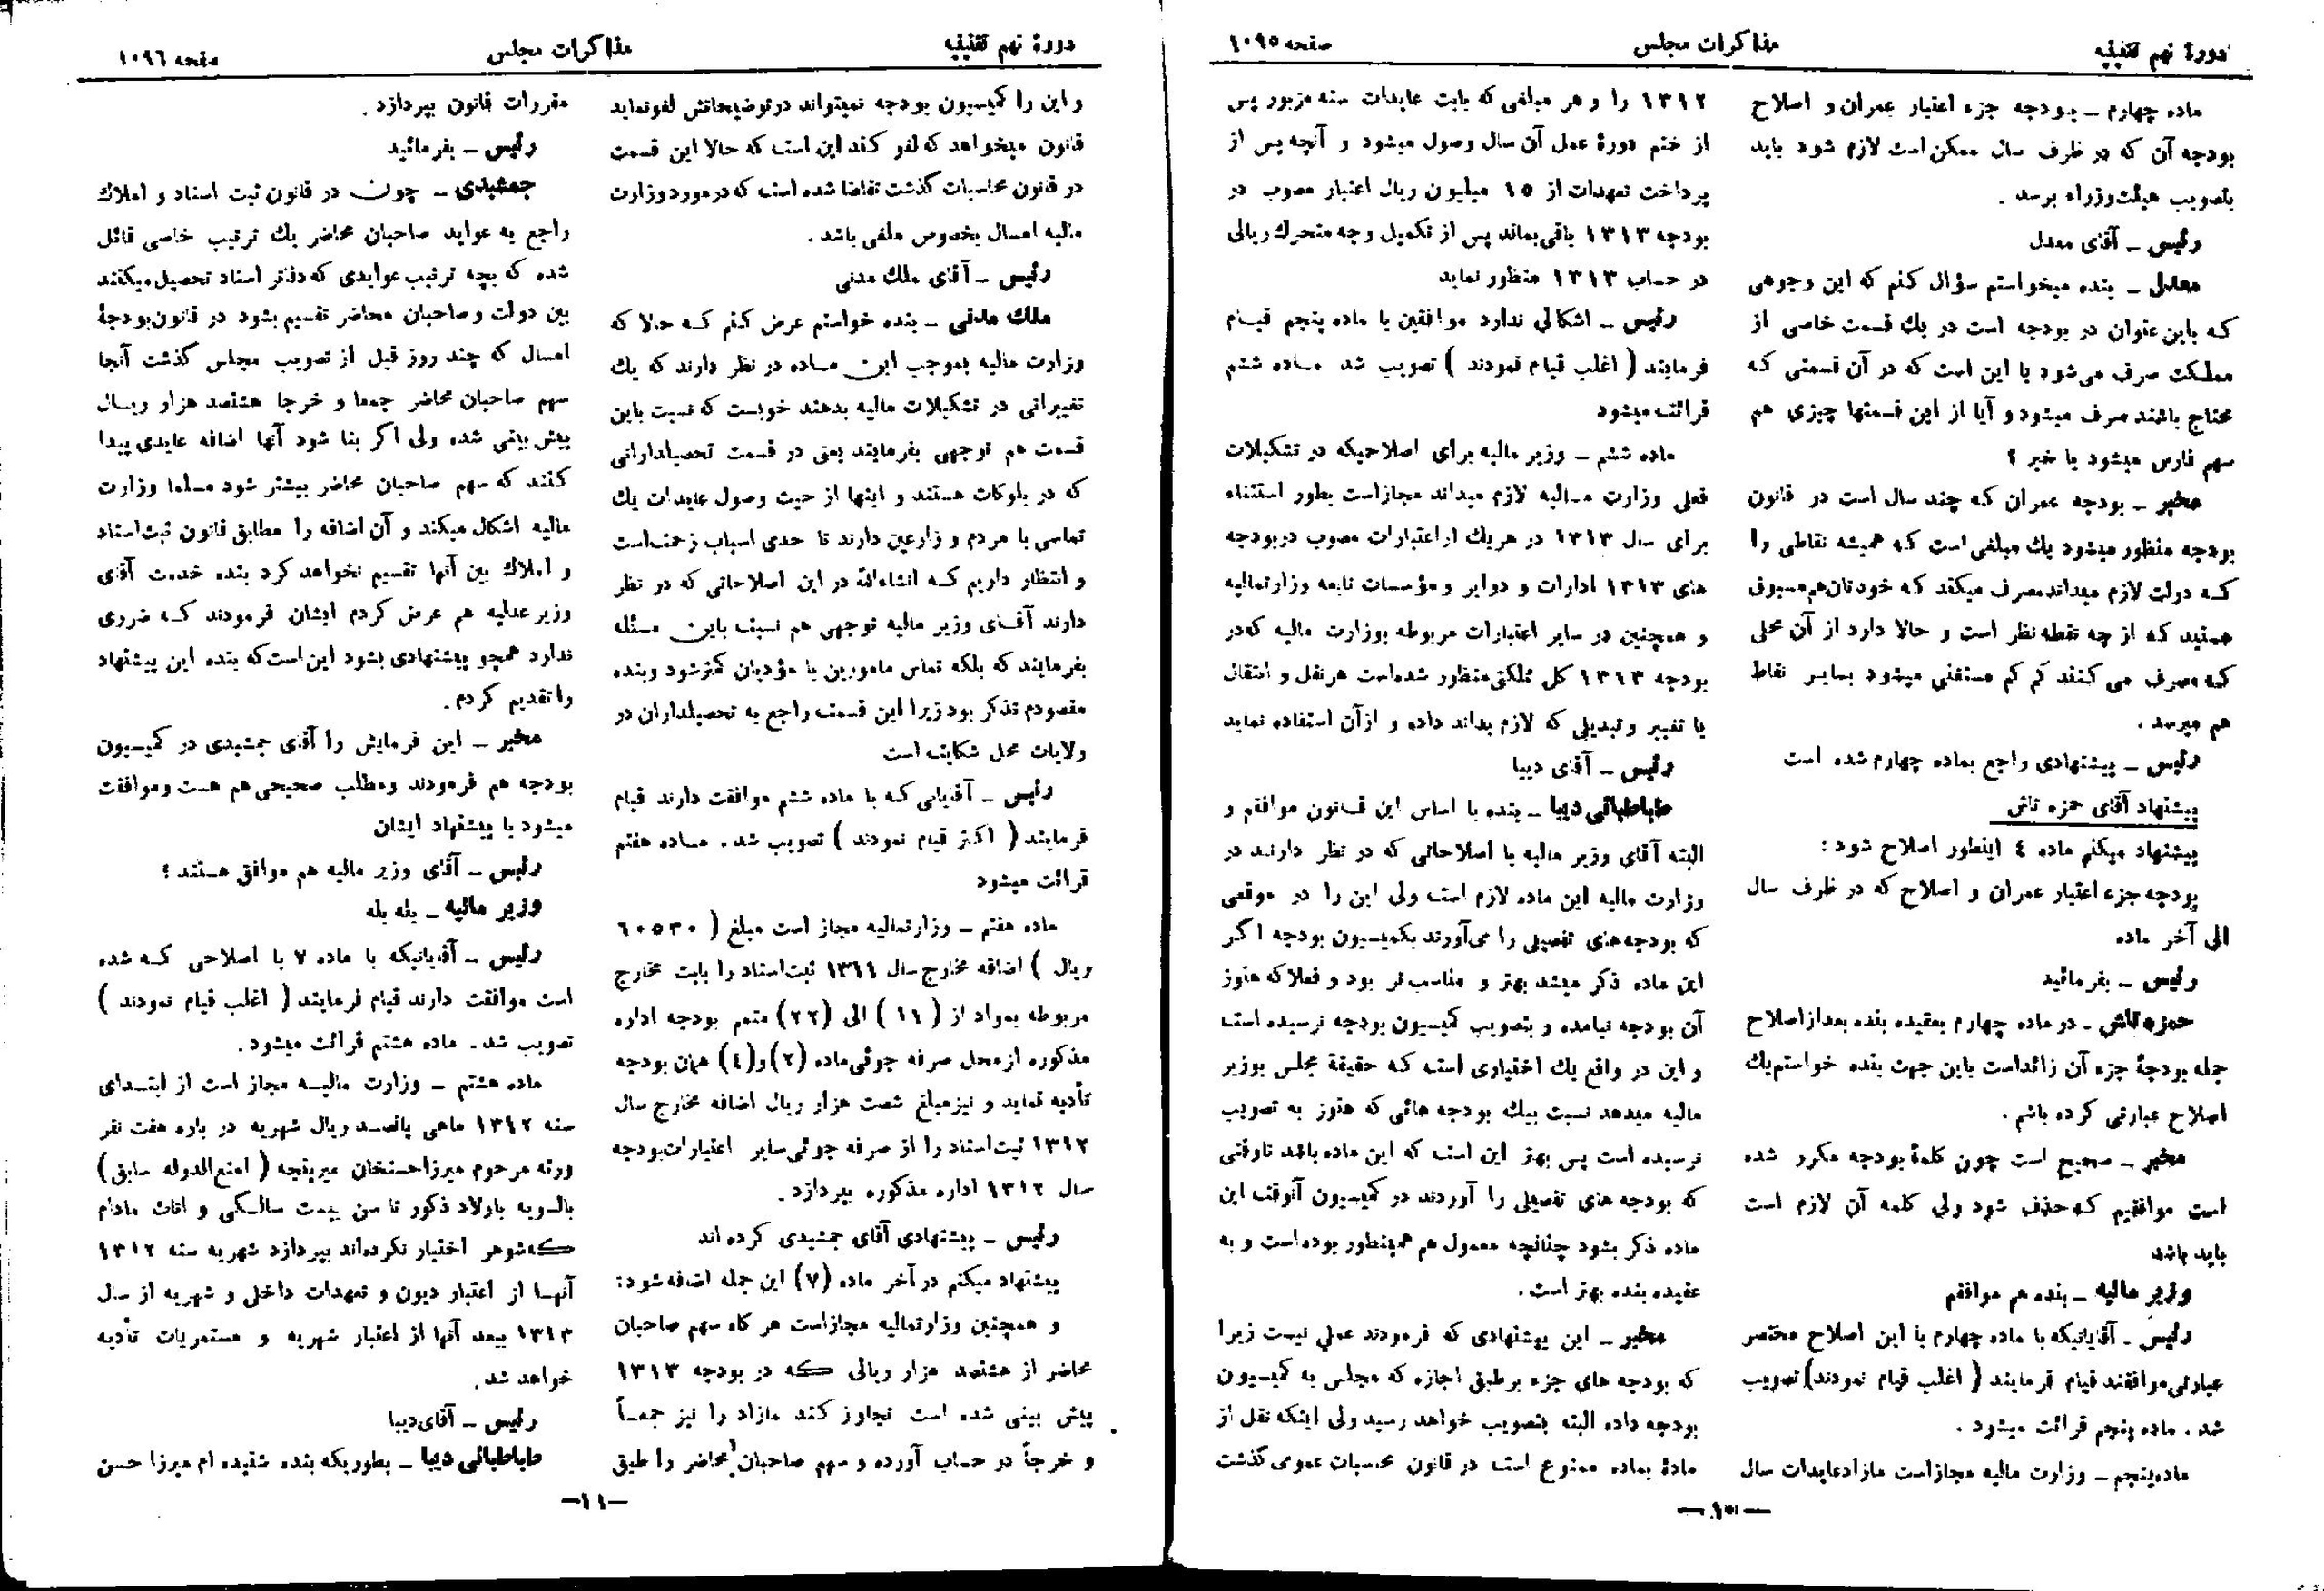 دورهٔ نهم تقنینیه
مذاکرات مجلس
صفحه ۱۰۹۵
ماده چهارم ـ بودجه جزء اعتبار عمران و اصلاح
بودجه آن که در ظرف سال ممکن است لازم شود باید
بتصویب هیئت‌وزراء برسد .
رئیس ـ آقای معدل
معدل ـ بنده میخواستم سؤال کنم که این وجوهی
که باین عنوان در بودجه است در یك قسمت خاصی از
مملکت صرف می‌شود یا این است که در آن قسمتی که
محتاج باشند صرف میشود و آیا از این قسمتها چیزی هم
سهم فارس میشود یا خیر ؟
مخبر ـ بودجه عمران که چند سال است در قانون
بودجه منظور میشود یك مبلغی است که همیشه نقاطی را
که دولت لازم میداند مصرف میکند که خودتان هم مسبوق
هستید که از چه نقطه نظر است و حالا دارد از آن محلی
که مصرف می کنند کم کم مستغنی میشود بسایر نقاط
هم میرسد .
رئیس ـ پیشنهادی راجع بماده چهارم شده است
پیشنهاد آقای حمزه تاش
پیشنهاد میکنم ماده ٤ اینطور اصلاح شود :
بودجه جزء اعتبار عمران و اصلاح که در ظرف سال
الی آخر ماده
رئیس ـ بفرمائید
حمزه تاش ـ در ماده چهارم بعقیده بنده بعد از اصلاح
جمله بودجهٔ جزء آن زائد است باین جهت بنده خواستم یك
اصلاح عبارتی کرده باشم .
مخبر ـ صحیح است چون کلمهٔ بودجه مکرر شده
است موافقیم که حذف شود ولی کلمه آن لازم است
باید باشد
وزیر مالیه ـ بنده هم موافقم
رئیس ـ آقایانیکه با ماده چهارم با این اصلاح مختصر
عبارتی موافقند قیام فرمایند ( اغلب قیام نمودند) تصویب
شد . ماده پنجم قرائت میشود .
ماده پنجم ـ وزارت مالیه مجاز است مازاد عایدات سال
۱۳۱۲ را و هر مبلغی که بابت عایدات سنه مزبور پس
از ختم دورهٔ عمل آن سال وصول میشود و آنچه پس از
پرداخت تعهدات از ۱۵ میلیون ریال اعتبار مصوب در
بودجه ۱۳۱۳ باقی بماند پس از تکمیل وجه متحرك ریالی
در حساب ۱۳۱۳ منظور نماید
رئیس ـ اشکالی ندارد موافقین با ماده پنجم قیام
فرمایند ( اغلب قیام نمودند ) تصویب شد ماده ششم
قرائت میشود
ماده ششم ـ وزیر مالیه برای اصلاحیکه در تشکیلات
فعلی وزارت مالیه لازم میداند مجاز است بطور استثناء
برای سال ۱۳۱۳ در هریك از اعتبارات مصوب در بودجه
های ۱۳۱۳ ادارات و دوایر و مؤسسات تابعه وزارتمالیه
و همچنین در سایر اعتبارات مربوطه بوزارت مالیه که در
بودجه ۱۳۱۳ کل مملکتی منظور شده‌است هر نقل و انتقال
یا تغییر و تبدیلی که لازم بداند داده و از آن استفاده نماید
رئیس ـ آقای دیبا
طباطبائی دیبا ـ بنده با اساس این قانون موافقم و
البته آقای وزیر مالیه با اصلاحاتی که در نظر دارند در
وزارت مالیه این ماده لازم است ولی این را در موقعی
که بودجه‌های تفصیلی را می‌آورند بکمیسیون بودجه اگر
این ماده ذکر میشد بهتر و مناسب‌تر بود و فعلا که هنوز
آن بودجه نیامده و بتصویب کمیسیون بودجه نرسیده است
و این در واقع یك اختیاری است که حقیقة مجلس بوزیر
مالیه میدهد نسبت بیك بودجه هائی که هنوز به تصویب
نرسیده است پس بهتر این است که این ماده باشد تا وقتی
که بودجه های تفصیلی را آوردند در کمیسیون آنوقت این
ماده ذکر بشود چنانچه معمول هم همینطور بوده‌است و به
عقیده بنده بهتر است .
مخبر ـ این پیشنهادی که فرمودند عملی نیست زیرا
که بودجه های جزء بر طبق اجازه که مجلس به کمیسیون
بودجه داده البته بتصویب خواهد رسید ولی اینکه نقل از
مادهٔ بماده ممنوع است در قانون محسبات عمومی گذشت
ـ۱۰ـ
دورهٔ نهم تقنینیه
مذاکرات مجلس
صفحه ۱۰۹٦
و این را کمیسیون بودجه نمیتواند در توضیحاتش لغو نماید
قانون میخواهد که لغو کند این است که حالا این قسمت
در قانون محاسبات گذشت تقاضا شده است که در مورد وزارت
مالیه امسال بخصوص ملغی باشد .
رئیس ـ آقای ملك مدنی
ملك مدنی ـ بنده خواستم عرض کنم که حالا که
وزارت مالیه بموجب این ماده در نظر دارند که یك
تغییراتی در تشکیلات مالیه بدهند خوبست که نسبت باین
قسمت هم توجهی بفرمایند یعنی در قسمت تحصیلدارانی
که در بلوکات هستند و اینها از حیث وصول عایدات یك
تماسی با مردم و زارعین دارند تا حدی اسباب زحمت‌است
و انتظار داریم که انشاءالله در این اصلاحاتی که در نظر
دارند آقای وزیر مالیه توجهی هم نسبت باین مسئله
بفرمایند که بلکه تماس مامورین با مؤدیان کمتر شود و بنده
مقصودم تذکر بود زیرا این قسمت راجع به تحصیلداران در
ولایات محل شکایت است
رئیس ـ آقایانی که با ماده ششم موافقت دارند قیام
فرمایند ( اکثر قیام نمودند ) تصویب شد . ماده هفتم
قرائت میشود
ماده هفتم ـ وزارتمالیه مجاز است مبلغ ( ٦۰۵۳۰
ریال ) اضافه مخارج سال ۱۳۱۱ ثبت‌اسناد را بابت مخارج
مربوطه بمواد از ( ۱۱ ) الی (۲۲) متمم بودجه اداره
مذکوره از محل صرفه جوئی ماده (۲) و(٤) همان بودجه
تأدیه نماید و نیز مبلغ شصت هزار ریال اضافه مخارج سال
۱۳۱۲ ثبت‌اسناد را از صرفه جوئی سایر اعتبارات‌بودجه
سال ۱۳۱۲ اداره مذکوره بپردازد .
رئیس ـ پیشنهادی آقای جمشیدی کرده اند
پیشنهاد میکنم در آخر ماده (۷) این جمله اضافه شود :
و همچنین وزارتمالیه مجاز است هر گاه سهم صاحبان
محاضر از هشتصد هزار ریالی که در بودجه ۱۳۱۳
پیش بینی شده است تجاوز کند مازاد را نیز جمعاً
و خرجاً در حساب آورده و سهم صاحبان محاضر را طبق
مقررات قانون بپردازد .
رئیس ـ بفرمائید
جمشیدی ـ چون در قانون ثبت اسناد و املاك
راجع به عواید صاحبان محاضر یك ترتیب خاصی قائل
شده که بچه ترتیب عوایدی که دفاتر اسناد تحصیل میکنند
بین دولت و صاحبان محاضر تقسیم بشود در قانون بودجهٔ
امسال که چند روز قبل از تصویب مجلس گذشت آنجا
سهم صاحبان محاضر جمعا و خرجا هشتصد هزار ریال
پیش بینی شده ولی اگر بنا شود آنها اضافه عایدی پیدا
کنند که سهم صاحبان محاضر بیشتر شود مسلما وزارت
مالیه اشکال میکند و آن اضافه را مطابق قانون ثبت‌اسناد
و املاك بین آنها تقسیم نخواهد کرد بنده خدمت آقای
وزیر عدلیه هم عرض کردم ایشان فرمودند که ضرری
ندارد همچو پیشنهادی بشود این است که بنده این پیشنهاد
را تقدیم کردم .
مخبر ـ این فرمایش را آقای جمشیدی در کمیسیون
بودجه هم فرمودند و مطلب صحیحی هم هست و موافقت
میشود با پیشنهاد ایشان
رئیس ـ آقای وزیر مالیه هم موافق هستند ؟
وزیر مالیه ـ بله بله
رئیس ـ آقایانیکه با ماده ۷ با اصلاحی که شده
است موافقت دارند قیام فرمایند ( اغلب قیام نمودند )
تصویب شد . ماده هشتم قرائت میشود .
ماده هشتم ـ وزارت مالیه مجاز است از ابتدای
سنه ۱۳۱۲ ماهی پانصد ریال شهریه در باره هفت نفر
ورثه مرحوم میرزا حسنخان میرپنجه ( امنع‌الدوله سابق)
بالسویه باولاد ذکور تا سن بیست سالگی و اناث مادام
که‌شوهر اختیار نکرده‌اند بپردازد شهریه سنه ۱۳۱۲
آنها از اعتبار دیون و تعهدات داخلی و شهریه از سال
۱۳۱۳ ببعد آنها از اعتبار شهریه و مستمریات تأدیه
خواهد شد .
رئیس ـ آقای دیبا
طباطبائی دیبا ـ بطوریکه بنده شنیده ام میرزا حسن
ـ۱۱ـ